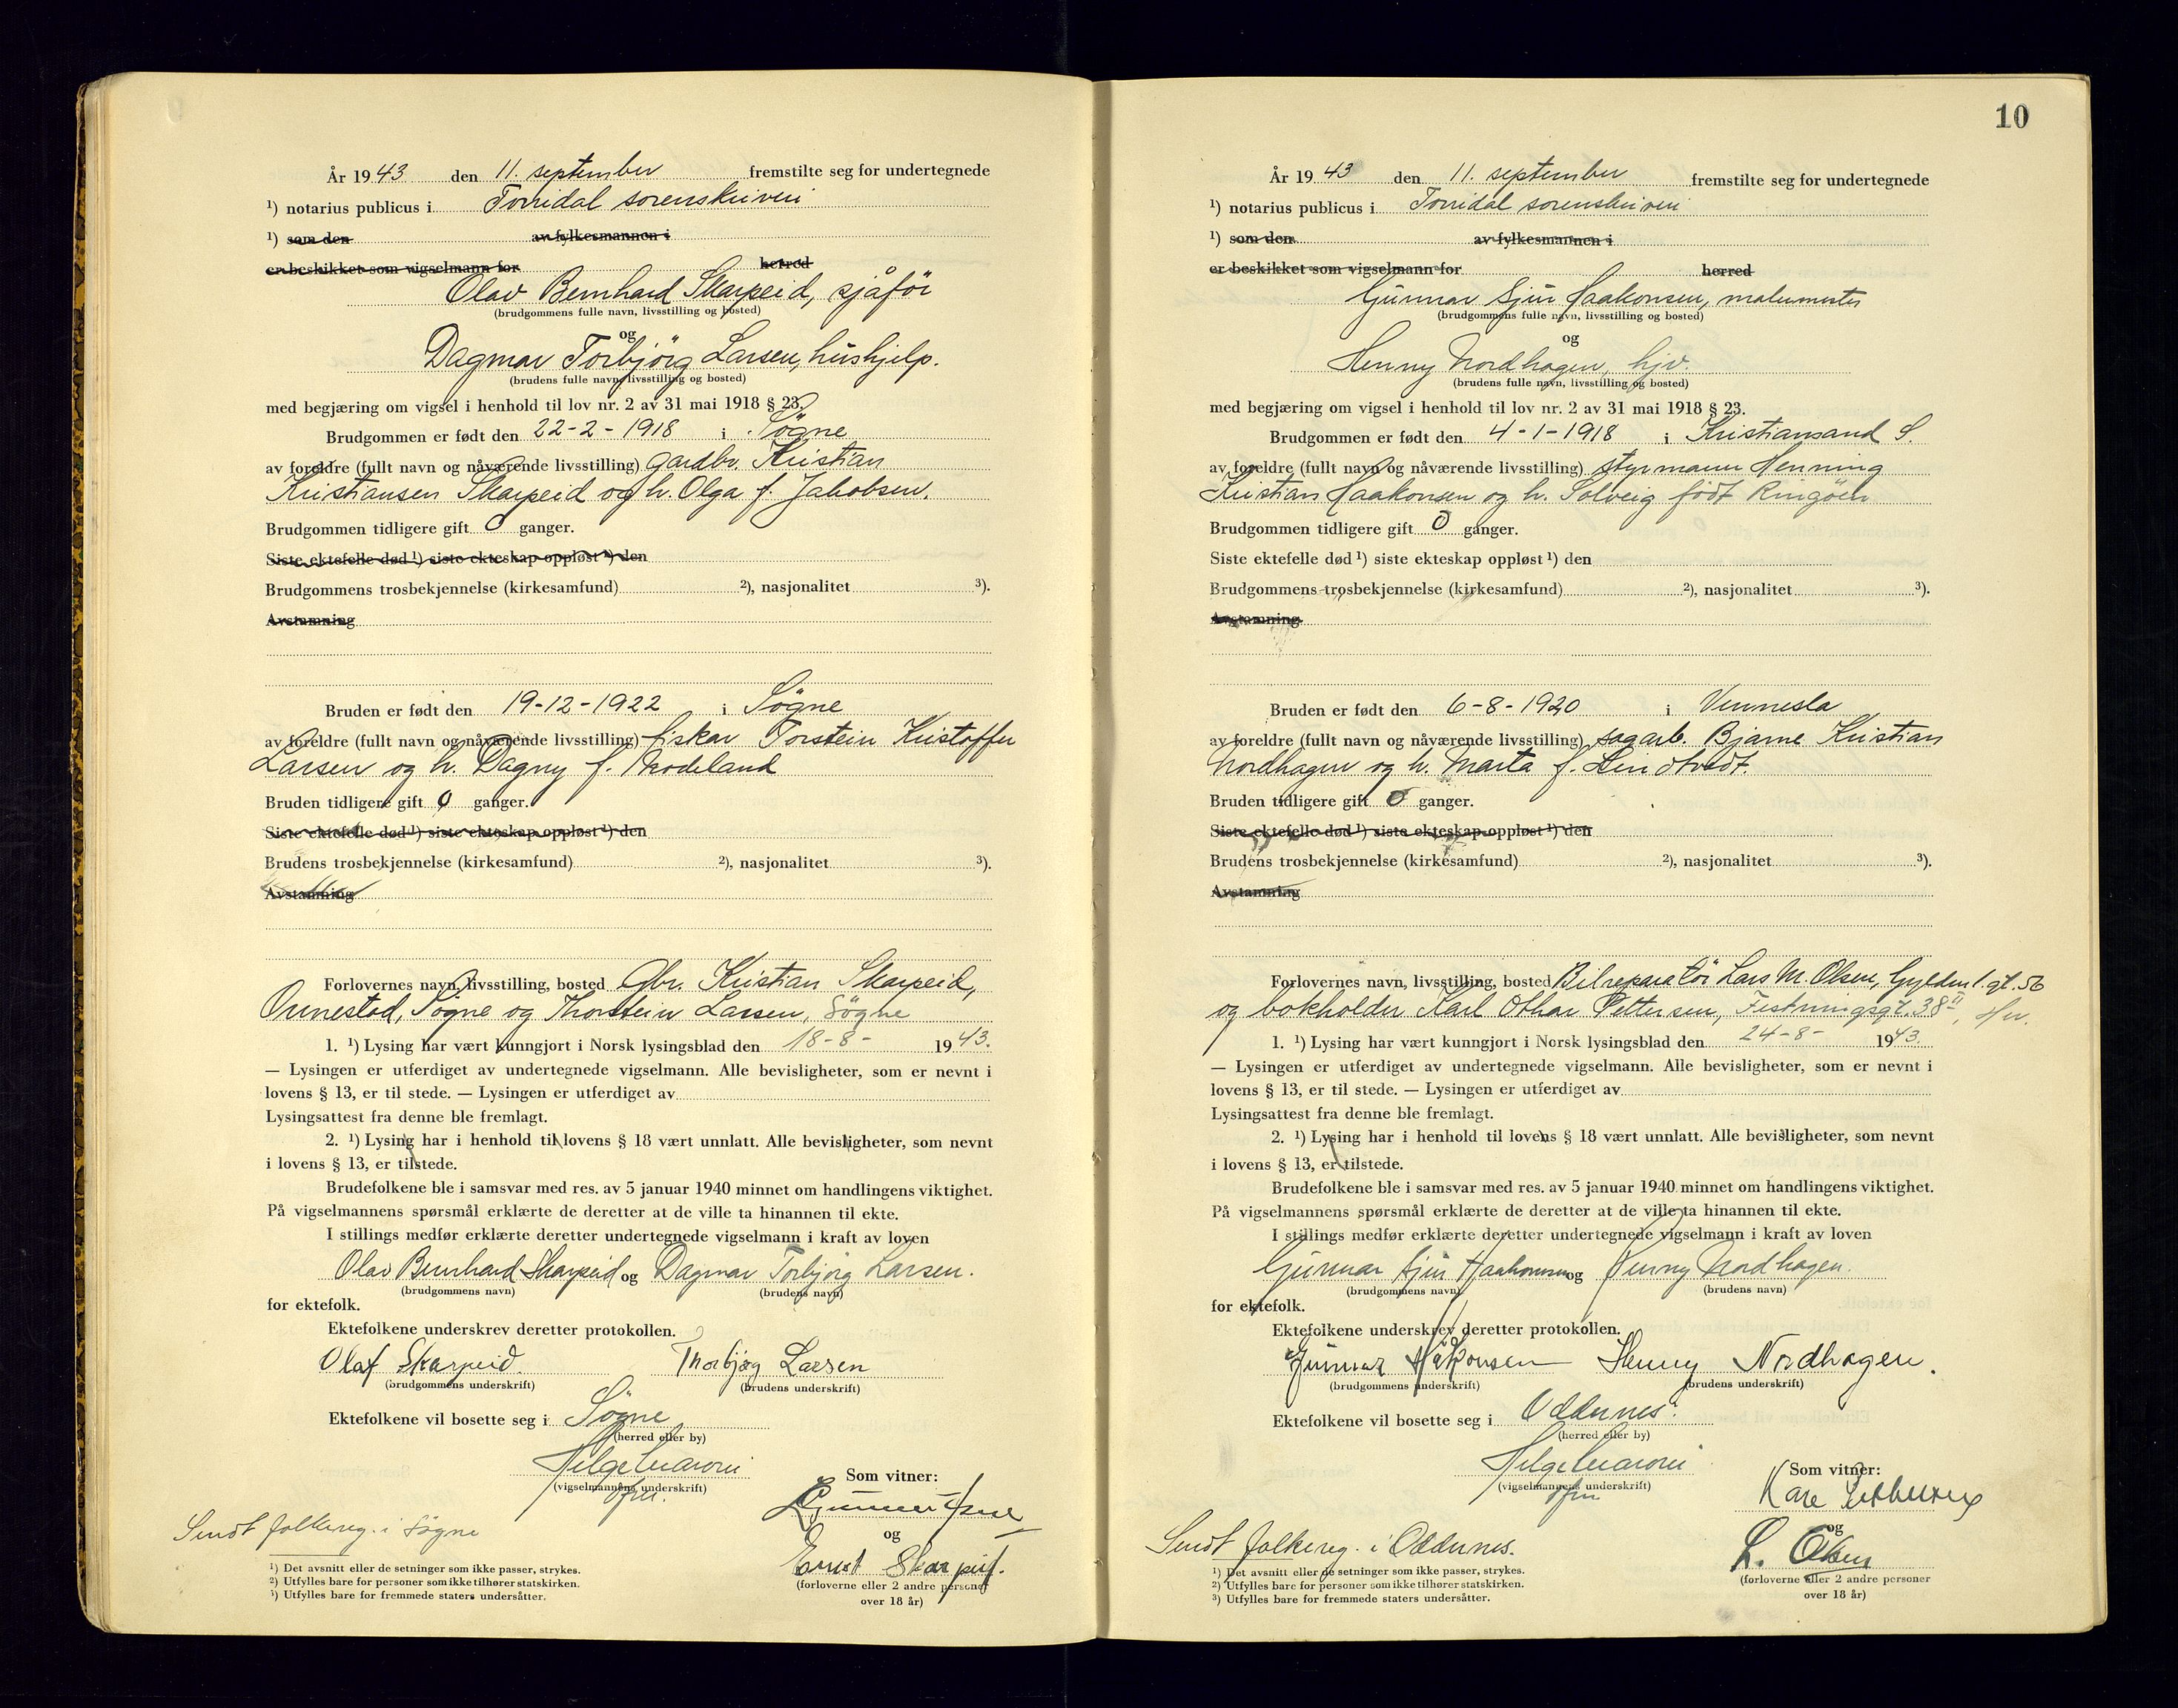 År 1943 den 11. september fremstilte seg for undertegnede
¹) notarius publicus i Torridal sorenskriveri
¹) som den av fylkesmannen i
er beskikket som vigselmann for herred
Olav Bernhard Skarpeid, sjåför
(brudgommens fulle navn, livsstilling og bosted)
og
Dagmar Torbjörg Larsen, hushjelp.
(brudens fulle navn, livsstilling og bosted)
med begjæring om vigsel i henhold til lov nr. 2 av 31 mai 1918 § 23.
Brudgommen er født den 22-2-1918 i Sögne
av foreldre (fullt navn og nåværende livsstilling) gardbr. Kristian
Kristiansen Skarpeid og h. Olga f. Jakobsen.
Brudgommen tidligere gift 0 ganger.
Siste ektefelle død ¹) siste ekteskap oppløst ¹) den
Brudgommens trosbekjennelse (kirkesamfund) ²), nasjonalitet ³).
Avstamning
Bruden er født den 19-12-1922 i Sögne
av foreldre (fullt navn og nåværende livsstilling) fisker Torstein Kristoffer
Larsen og h. Dagny f. Modeland
Bruden tidligere gift 0 ganger.
Siste ektefelle død ¹) siste ekteskap oppløst ¹) den
Brudens trosbekjennelse (kirkesamfund) ²), nasjonalitet ³).
Avstamning
Forlovernes navn, livsstilling, bosted Gbr. Kristian Skarpeid,
Ormestad, Sögne og Thorstein Larsen, Sögne
1. ¹) Lysing har vært kunngjort i Norsk lysingsblad den 18-8- 1943.
— Lysingen er utferdiget av undertegnede vigselmann. Alle bevisligheter, som er nevnt i
lovens § 13, er til stede. — Lysingen er utferdiget av
Lysingsattest fra denne ble fremlagt.
2. ¹) Lysing har i henhold til lovens § 18 vært unnlatt. Alle bevisligheter, som nevnt
i lovens § 13, er tilstede.
Brudefolkene ble i samsvar med res. av 5 januar 1940 minnet om handlingens viktighet.
På vigselmannens spørsmål erklærte de deretter at de ville ta hinannen til ekte.
I stillings medfør erklærte deretter undertegnede vigselmann i kraft av loven
Olav Bernhard Skarpeid og Dagmar Torbjörg Larsen.
(brudgommens navn) (brudens navn)
for ektefolk.
Ektefolkene underskrev deretter protokollen.
Olaf Skarpeid. Thorbjørg Larsen
(brudgommens underskrift) (brudens underskrift)
Ektefolkene vil bosette seg i Sögne
(herred eller by)
Som vitner:
(vigselmannens underskrift)
og
Sendt folkereg. i Sögne
Ernst Skarpeid.
(forloverne eller 2 andre personer
over 18 år)
¹) Det avsnitt eller de setninger som ikke passer, strykes.
²) Utfylles bare for personer som ikke tilhører statskirken.
³) Utfylles bare for fremmede staters undersåtter.
10
År 1943 den 11. september fremstilte seg for undertegnede
¹) notarius publicus i Torridal sorenskriveri
¹) som den av fylkesmannen i
er beskikket som vigselmann for herred
Gunnar Sjur Haakonsen, malermester
(brudgommens fulle navn, livsstilling og bosted)
og
Henny Nordhagen, hjv.
(brudens fulle navn, livsstilling og bosted)
med begjæring om vigsel i henhold til lov nr. 2 av 31 mai 1918 § 23.
Brudgommen er født den 4-1-1918 i Kristiansand S.
av foreldre (fullt navn og nåværende livsstilling) styrmann Henning
Kristian Haakonsen og h. Solveig født Ringöen
Brudgommen tidligere gift 0 ganger.
Siste ektefelle død ¹) siste ekteskap oppløst ¹) den
Brudgommens trosbekjennelse (kirkesamfund) ²), nasjonalitet ³).
Avstamning
Bruden er født den 6-8-1920 i Vennesla
av foreldre (fullt navn og nåværende livsstilling) sagarb. Bjarne Kristian
Nordhagen og h. Marta f. Lindtvedt.
Bruden tidligere gift 0 ganger.
Siste ektefelle død ¹) siste ekteskap oppløst ¹) den
Brudens trosbekjennelse (kirkesamfund) ²), nasjonalitet ³).
Avstamning
Forlovernes navn, livsstilling, bosted Bilreparatör Lars M. Olsen, Gyldenl. gt. 56
og bokholder Karl Othar Pettersen, Festningsgt. 38 II,
1. ¹) Lysing har vært kunngjort i Norsk lysingsblad den 24-8- 1943.
— Lysingen er utferdiget av undertegnede vigselmann. Alle bevisligheter, som er nevnt i
lovens § 13, er til stede. — Lysingen er utferdiget av
Lysingsattest fra denne ble fremlagt.
2. ¹) Lysing har i henhold til lovens § 18 vært unnlatt. Alle bevisligheter, som nevnt
i lovens § 13, er tilstede.
Brudefolkene ble i samsvar med res. av 5 januar 1940 minnet om handlingens viktighet.
På vigselmannens spørsmål erklærte de deretter at de ville ta hinannen til ekte.
I stillings medfør erklærte deretter undertegnede vigselmann i kraft av loven
Gunnar Sjur Haakonsen og Henny Nordhagen.
(brudgommens navn) (brudens navn)
for ektefolk.
Ektefolkene underskrev deretter protokollen.
Gunnar Håkonsen Henny Nordhagen.
(brudgommens underskrift) (brudens underskrift)
Ektefolkene vil bosette seg i Oddernes.
(herred eller by)
Som vitner:
(vigselmannens underskrift)
Kåre
og
Sendt folkereg. i Oddernes.
L. Olsen
(forloverne eller 2 andre personer
over 18 år)
¹) Det avsnitt eller de setninger som ikke passer, strykes.
²) Utfylles bare for personer som ikke tilhører statskirken.
³) Utfylles bare for fremmede staters undersåtter.